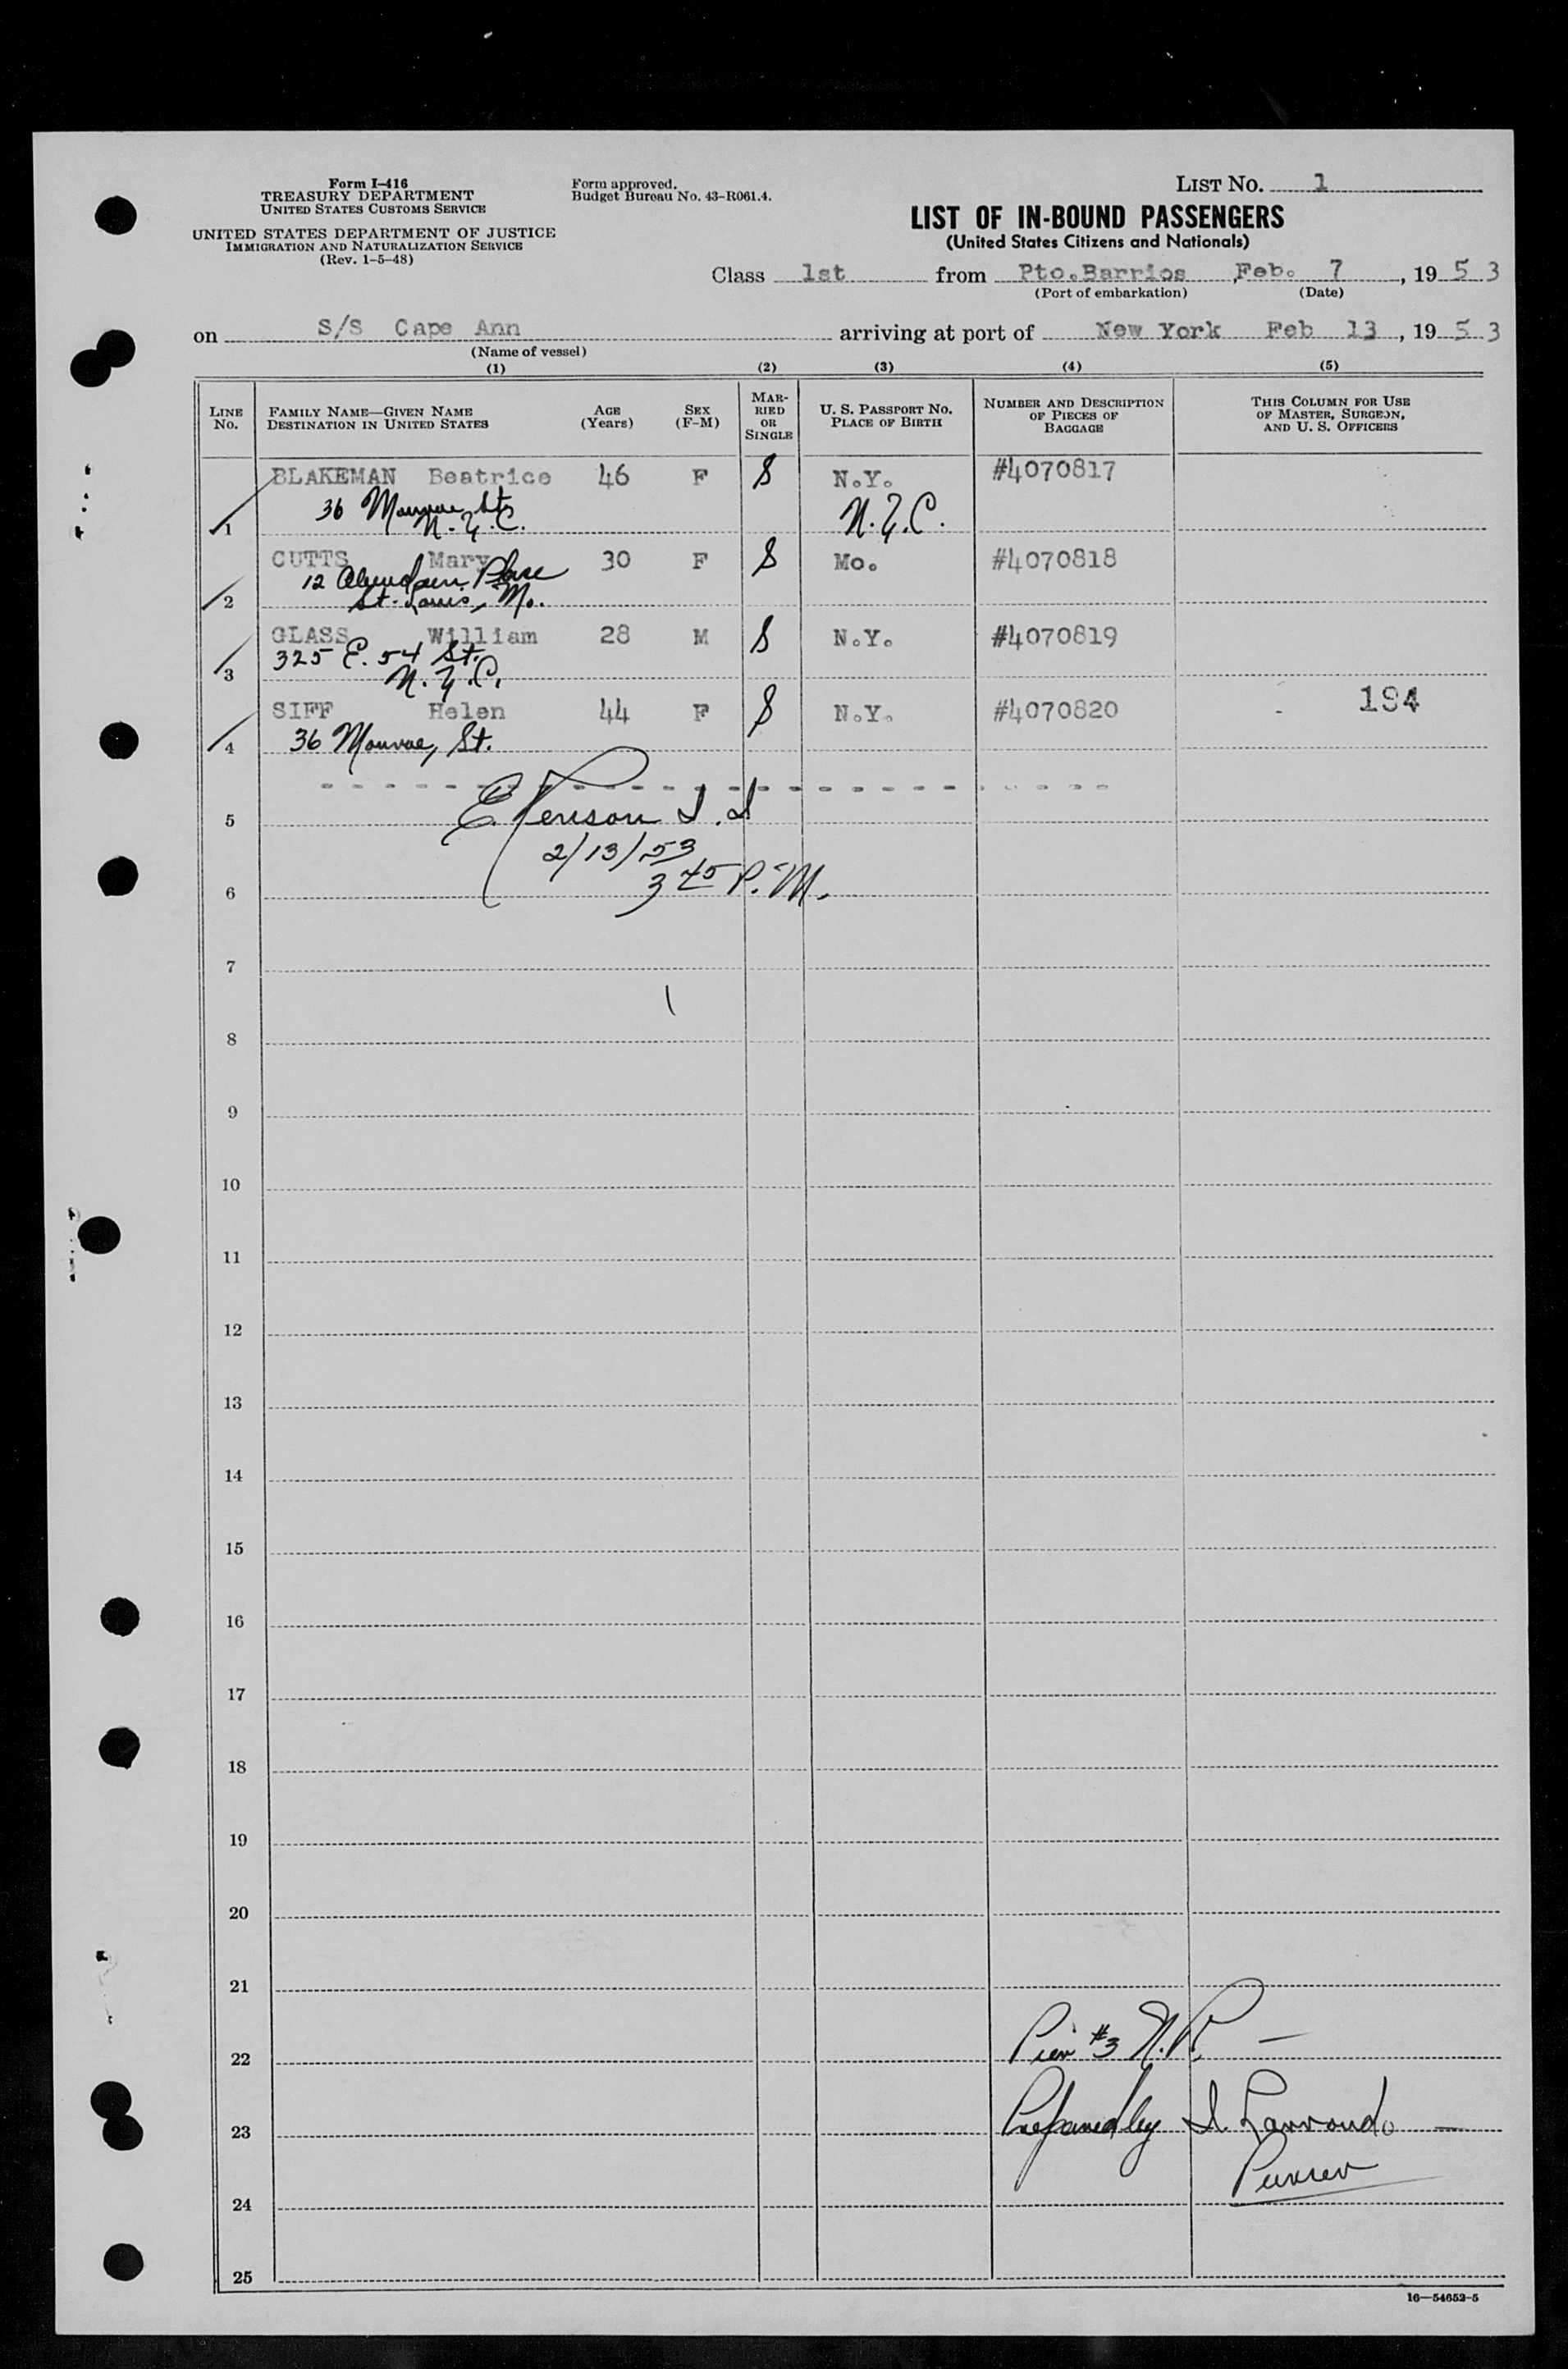 Form I-416
TREASURY DEPARTMENT
UNITED STATES CUSTOMS SERVICE
UNITED STATES DEPARTMENT OF JUSTICE
IMMIGRATION AND NATURALIZATION SERVICE
(Rev. 1-5-48)
Form approved.
Budget Bureau No. 43-R061.4.
LIST NO. 1
LIST OF IN-BOUND PASSENGERS
(United States Citizens and Nationals)
Class 1st from Pto.Barrios, Feb. 7, 1953
(Port of embarkation) (Date)
on S/S Cape Ann arriving at port of New York Feb 13, 1953
(Name of vessel)
(1) (2) (3) (4) (5)
LINE NO. FAMILY NAME—GIVEN NAME DESTINATION IN UNITED STATES AGE (Years) SEX (F-M) MARRIED OR SINGLE U. S. PASSPORT NO. PLACE OF BIRTH NUMBER AND DESCRIPTION OF PIECES OF BAGGAGE THIS COLUMN FOR USE OF MASTER, SURGEON, AND U. S. OFFICERS
BLAKEMAN Beatrice 46 F S N.Y. #4070817
36 Monroe St
1 N.Y.C. N.Y.C.
CUTTS Mary 30 F S Mo. #4070818
12 Place
2 St. Louis, Mo.
GLASS William 28 M S N.Y. #4070819
325 E. 54 St.
3 N.Y.C.
SIFF Helen 44 F S N.Y. #4070820 194
4 36 Monroe, St.
5 E. I. I
2/13/53
6 3 45 P.M.
7
8
9
10
11
12
13
14
15
16
17
18
19
20
21
22 Pier #3 N.R. —
23 Prepared by I. Larrondo —
Purser
24
25
16—54652-5